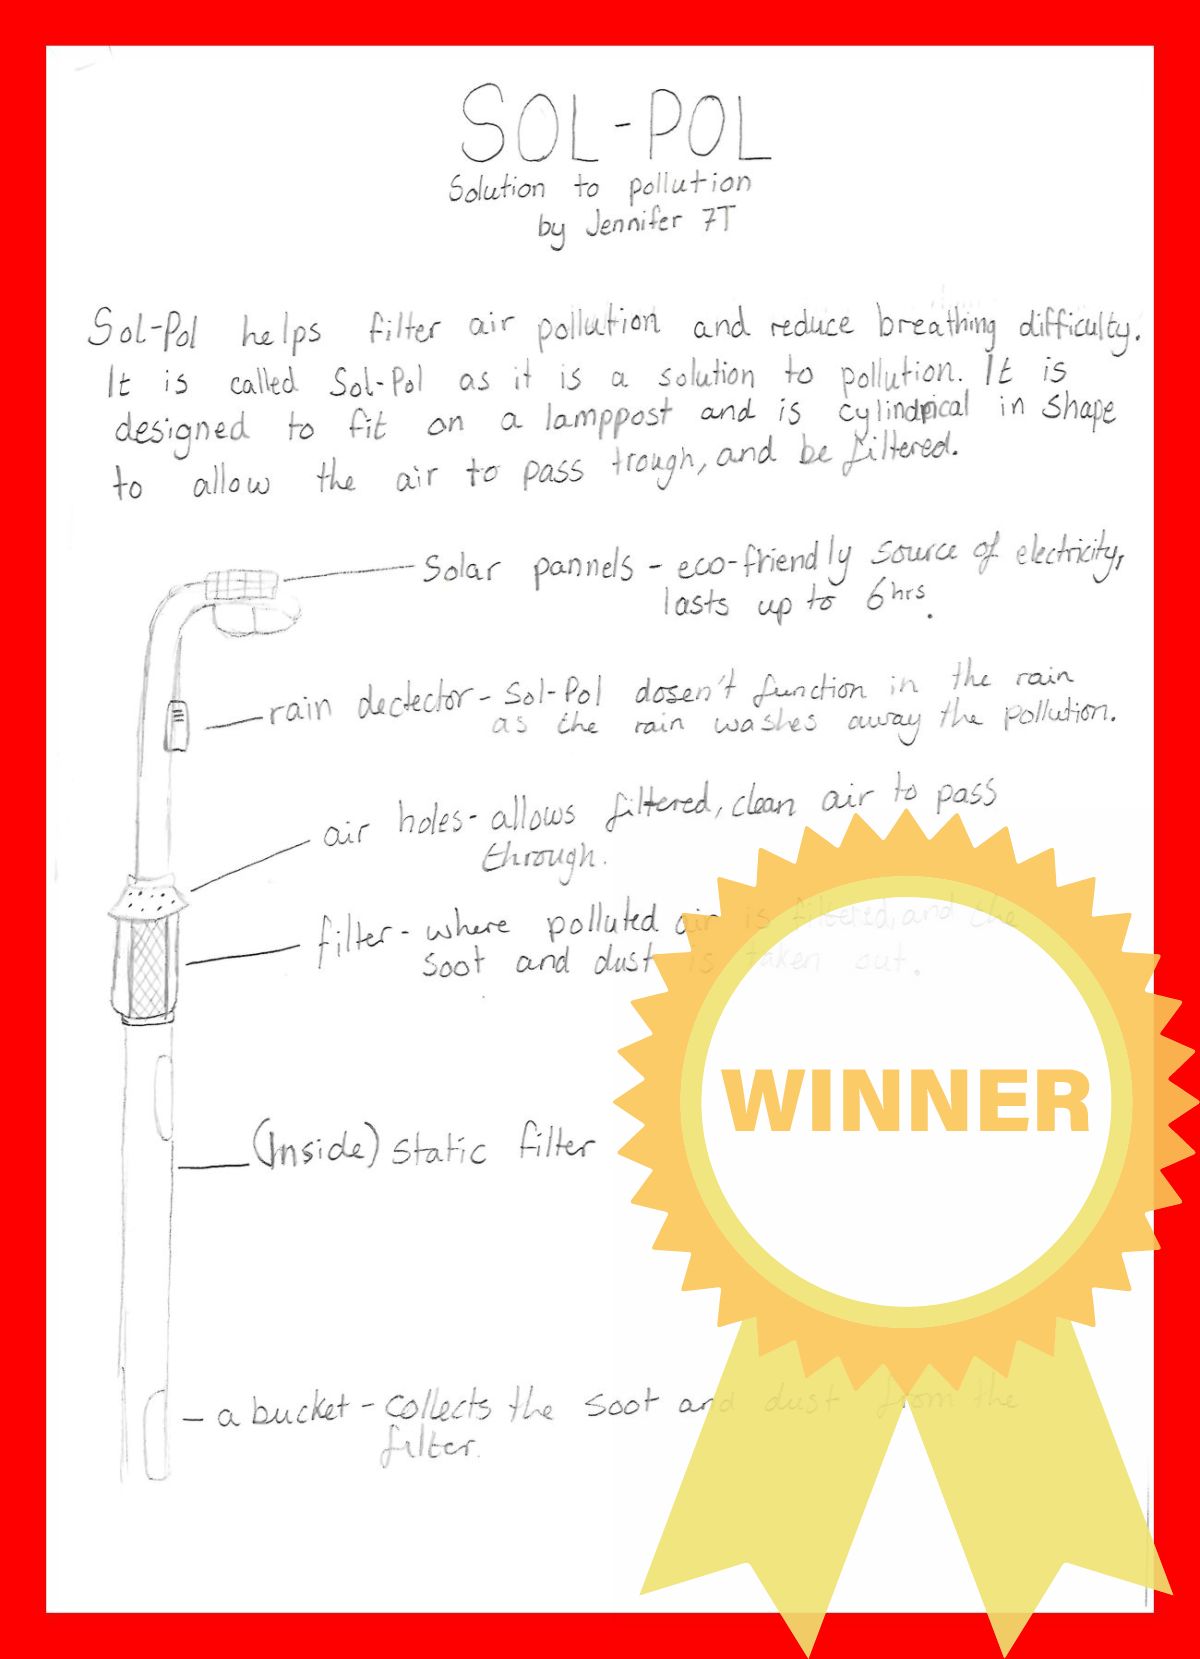 SOL-POL
Solution to pollution
by Jennifer 7T
Sol-Pol helps filter air pollution and reduce breathing difficulty.
It is called Sol-Pol as it is a solution to pollution. It is
designed to fit on a lamppost and is cylindrical in shape
to allow the air to pass trough, and be filtered.
Solar pannels - eco-friendly source of electricity,
lasts up to 6hrs.
rain dectector - Sol-Pol dosen't function in the rain
as the rain washes away the pollution.
air holes - allows filtered, clean air to pass
through.
filter - where polluted air is filtered, and the
soot and dust is taken out.
WINNER
(Inside) static filter
- a bucket - collects the soot and dust from the
filter.